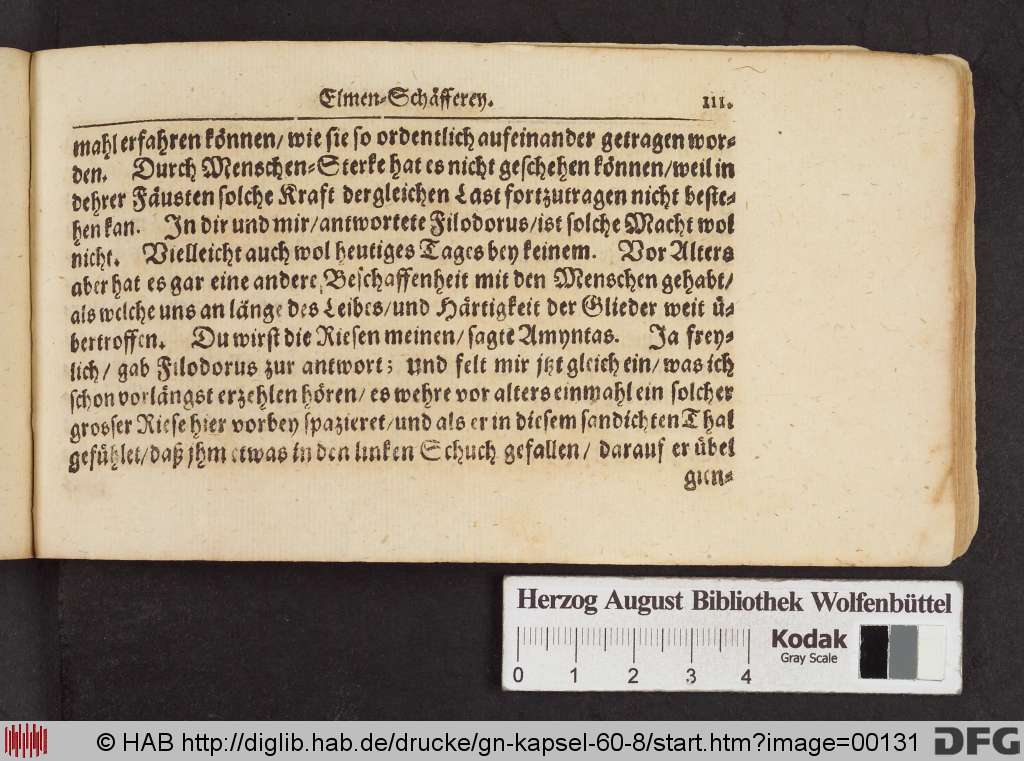 Elmen-Schäfferey. 111.
mahl erfahren können/ wie sie so ordentlich aufeinander getragen wor-
den. Durch Menschen-Sterke hat es nicht geschehen können/ weil in
dehrer Fäusten solche Kraft dergleichen Last fortzutragen nicht beste-
hen kan. In dir und mir/ antwortete Filodorus/ ist solche Macht wol
nicht. Vielleicht auch wol heutiges Tages bey keinem. Vor Alters
aber hat es gar eine andere Beschaffenheit mit den Menschen gehabt/
als welche uns an länge des Leibes/ und Härtigkeit der Glieder weit ü-
bertroffen. Du wirst die Riesen meinen/ sagte Amyntas. Ja frey-
lich/ gab Filodorus zur antwort; und felt mir jtzt gleich ein/ was ich
schon vorlängst erzehlen hören/ es wehre vor alters einmahl ein solcher
grosser Riese hier vorbey spazieret/ und als er in diesem sandichten Thal
gefühlet/ daß jhm etwas in den linken Schuch gefallen/ darauf er übel
gien-
Herzog August Bibliothek Wolfenbüttel
Kodak
Gray Scale
0 1 2 3 4
© HAB http://diglib.hab.de/drucke/gn-kapsel-60-8/start.htm?image=00131 DFG